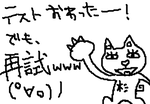 テストおわったー！
でも、
再試www
(°∀。)ノ